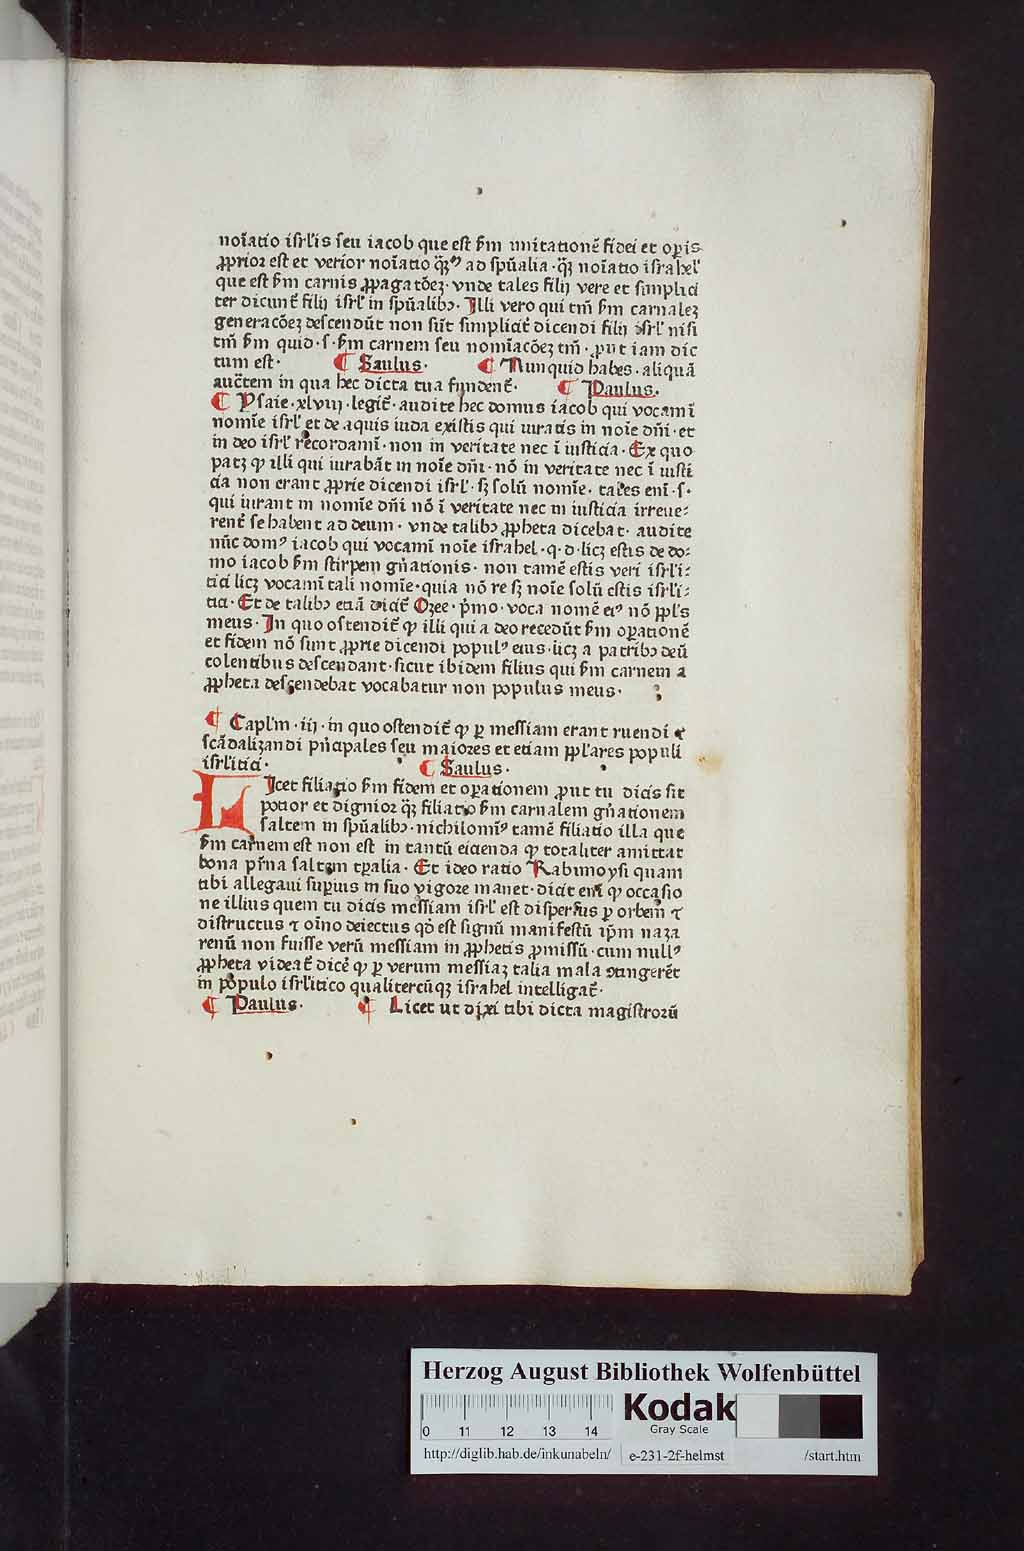 noĩatio iſrl'is ſeu iacob que eſt ẜm imitationẽ fidei et oꝑis
ꝓprior eſt et verior noĩatio q̃ꝫꝰ ad ſpũalia · q̃ꝫ noĩatio iſrahel'
que eſt ẜm carnis ꝓpagatõeꝫ · vnde tales filij vere et ſimplici
ter dicunt̃ filij iſrl' in ſpũalibꝫ · Illi vero qui tm̃ ẜm carnaleꝫ
generacõeꝫ deſcendũt non ſũt ſimplicit̃ dicendi filij iſrl' niſi
tm̃ ẜm quid · ſ · ẜm carnem ſeu nomĩacõeꝫ tm̃ · ꝓut iam dic
tum eſt · ¶ Saulus · ¶ Nunquid habes · aliquã
auct̃em in qua hec dicta tua fũndent̃ · ¶ Paulus ·
¶ Yſaie · xlviij · legit̃ · audite hec domus iacob qui vocamĩ
nomĩe iſrl' et de aquis iuda exiſtis qui iuratis in noĩe dñi · et
in deo iſrl' recordamĩ · non in veritate nec ĩ iuſticia · Ex quo
patꝫ ꝙ illi qui iurabãt in noĩe dñi · nõ in veritate nec ĩ iuſti
cia non erant ꝓprie dicendi iſrl' · ſꝫ ſolũ nomĩe · tales enĩ · ſ ·
qui iurant in nomĩe dñi nõ ĩ veritate nec in iuſticia irreue⸗
rent̃ ſe habent ad deum · vnde talibꝫ ꝓpheta dicebat · audite
nũc domꝰ iacob qui vocamĩ noĩe iſrahel · q · d · licꝫ eſtis de do⸗
mo iacob ẜm ſtirpem gñationis · non tamẽ eſtis veri iſrl'i⸗
tici licꝫ vocamĩ tali nomĩe · quia nõ re ſꝫ noĩe ſolũ eſtis iſrl'i⸗
tici · Et de talibꝫ etiã dicit̃ Ozee · p̃mo · voca nomẽ eiꝰ nõ ppl's
meus · In quo oſtendit̃ ꝙ illi qui a deo recedũt ẜm oꝑationẽ
et fidem nõ ſunt ꝓprie dicendi populꝰ eius · licꝫ a patribꝫ deũ
colentibus deſcendant · ſicut ibidem filius qui ẜm carnem a
ꝓpheta deſcendebat vocabatur non populus meus ·
¶ Capl'm · iij · in quo oſtendit̃ ꝙ ꝑ meſſiam erant ruendi ⁊
ſcãdalizandi pñcipales ſeu maiores et etiam ppl'ares populi
iſrl'itici · ¶ Saulus ·
LIcet filiatio ẜm fidem et oꝑationem ꝓut tu dicis ſit
potior et dignior q̃ꝫ filiatio ẜm carnalem gñationem
ſaltem in ſpũalibꝫ · nichilomĩꝰ tamẽ filiatio illa que
ẜm carnem eſt non eſt in tantũ eicienda ꝙ totaliter amittat
bona pr̃na ſaltem tꝑalia · Et ideo ratio Rabimoyſi quam
tibi allegaui ſuꝑius in ſuo vigore manet · dicit enĩ ꝙ occaſio
ne illius quem tu dicis meſſiam iſrl' eſt diſperſus ꝑ orbem ⁊
diſtructus ⁊ oĩno deiectus qđ eſt ſignũ manifeſtũ ip̃m naza
renũ non fuiſſe verũ meſſiam in ꝓphetis ꝓmiſſũ · cum nullꝰ
ꝓpheta videat̃ dicẽ ꝙ ꝑ verum meſſiaꝫ talia mala ꝯtingerẽt
in populo iſrl'itico qualitercũqꝫ iſrahel intelligat̃ ·
¶ Paulus · ¶ Licet ut dixi tibi dicta magiſtrorũ
Herzog August Bibliothek Wolfenbüttel
0 11 12 13 14
Kodak
Gray Scale
http://diglib.hab.de/inkunabeln/ e-231-2f-helmst /start.htm